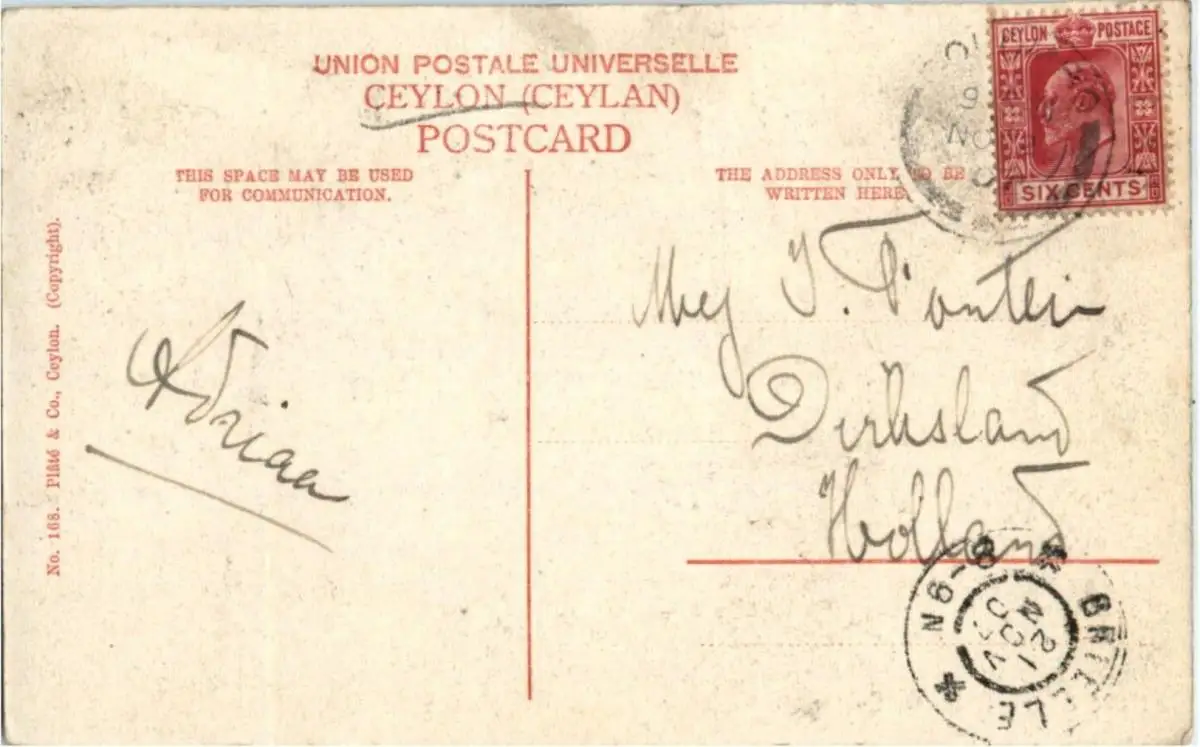 UNION POSTALE UNIVERSELLE
CEYLON (CEYLAN)
POSTCARD
THIS SPACE MAY BE USED
FOR COMMUNICATION.
THE ADDRESS ONLY TO BE
WRITTEN HERE.
CEYLON POSTAGE
SIX CENTS
No. 168. Plâté & Co., Ceylon. (Copyright).
Adriaan
Mej J. Pontein
Dirksland
Holland
BRIELLE
21
NOV